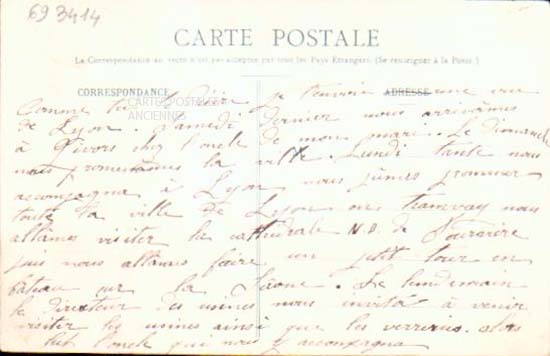 69 3414
CARTE POSTALE
La Correspondance au recto n'est pas acceptée par tous les Pays Étrangers. (Se renseigner à la Poste.)
CORRESPONDANCE ADRESSE
CARTES POSTALES
ANCIENNES
Comme tu le désire je t'envoie une vue
de Lyon. Samedi dernier nous arrivâmes
à Givors chez l'oncle de mon mari. Le dimanche
nous promenâmes la ville. Lundi tante nous
accompagna à Lyon nous fûmes promener
toute la ville de Lyon en tramway nous
allâmes visiter la cathédrale N.D. de Fourvière
puis nous allâmes faire un petit tour en
bateau sur la Saône. Le lendemain
le directeur des usines nous invita à venir
visiter les usines ainsi que les verreries. alors
l'oncle qui nous y accompagna